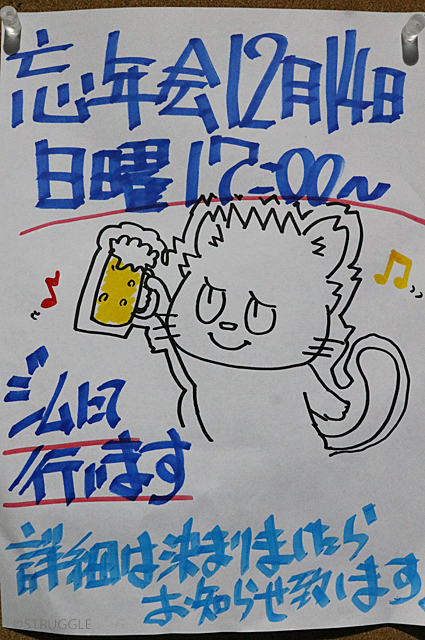 忘年会12月14日
日曜17:00〜
ジムにて
行います
詳細は決まりましたら
お知らせ致します。
©STRUGGLE